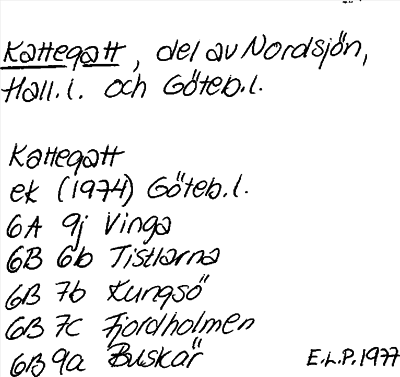 Kattegatt, del av Nordsjön,
Hall.l. och Göteb.l.
Kattegatt
ek (1974) Göteb.l.
6A 9j Vinga
6B 6b Tistlarna
6B 7b Kungsö
6B 7c Fjordholmen
6B 9a Buskär
E.L.P. 1977